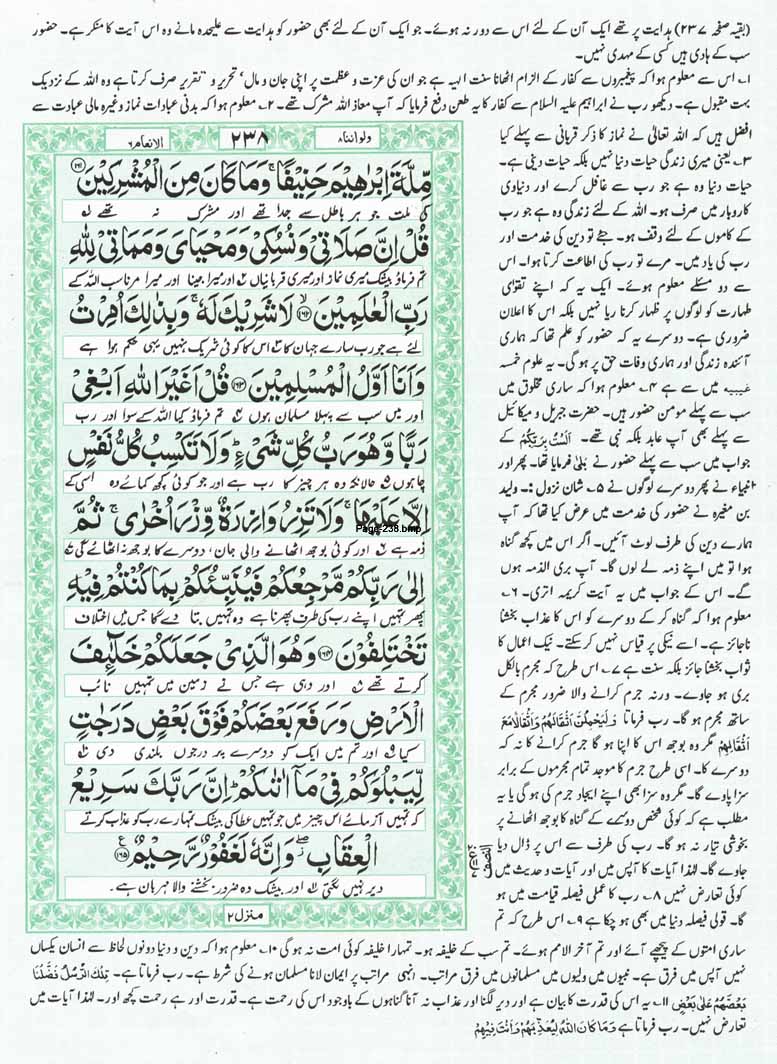 (بقیہ صفحہ ۲۳۷) ہدایت پر تھے ایک آن کے لئے اس سے دور نہ ہوئے۔ جو ایک آن کے لئے بھی حضور کو ہدایت سے علیحدہ مانے وہ اس آیت کا منکر ہے۔ حضور
سب کے ہادی ہیں کسی کے مہدی نہیں۔
۱۔ اس سے معلوم ہوا کہ پیغمبروں سے کفار کے الزام اٹھانا سنت الہیہ ہے جو ان کی عزت و عظمت پر اپنی جان و مال، تحریر و تقریر صرف کرتا ہے وہ اللہ کے نزدیک
بہت مقبول ہے۔ دیکھو رب نے ابراہیم علیہ السلام سے کفار کا یہ طعن دفع فرمایا کہ آپ معاذ اللہ مشرک تھے۔ ۲۔ معلوم ہوا کہ بدنی عبادات نماز وغیرہ مالی عبادت سے
افضل ہیں کہ اللہ تعالیٰ نے نماز کا ذکر قربانی سے پہلے کیا
۳۔ یعنی میری زندگی حیات دنیا نہیں بلکہ حیات دینی ہے۔
حیات دنیا وہ ہے جو رب سے غافل کرے اور دنیاوی
کاروبار میں صرف ہو۔ اللہ کے لئے زندگی وہ ہے جو رب
کے کاموں کے لئے وقف ہو۔ جئے تو دین کی خدمت اور
رب کی یاد میں۔ مرے تو رب کی اطاعت کرتا ہوا۔ اس
سے دو مسئلے معلوم ہوئے۔ ایک یہ کہ اپنے تقویٰ
طہارت کو لوگوں پر ظہار کرنا ریا نہیں بلکہ اس کا اعلان
ضروری ہے۔ دوسرے یہ کہ حضور کو علم تھا کہ ہماری
آئندہ زندگی اور ہماری وفات حق پر ہو گی۔ یہ علوم خمسہ
غیبیہ میں سے ہے ۴۔ معلوم ہوا کہ ساری مخلوق میں
سب سے پہلے مومن حضور ہیں۔ حضرت جبریل و میکائیل
سے پہلے بھی آپ عابد بلکہ نبی تھے۔ اَلَسْتُ بِرَبِّكُمْ کے
جواب میں سب سے پہلے حضور نے بلیٰ فرمایا تھا۔ پھر اور
انبیاء نے پھر دوسرے لوگوں نے ۵۔ شان نزول :۔ ولید
بن مغیرہ نے حضور کی خدمت میں عرض کیا تھا کہ آپ
ہمارے دین کی طرف لوٹ آئیں۔ اگر اس میں کچھ گناہ
ہوا تو میں اپنے ذمہ لے لوں گا۔ آپ بری الذمہ ہوں
گے۔ اس کے جواب میں یہ آیت کریمہ اتری۔ ۶۔
معلوم ہوا کہ گناہ کر کے دوسرے کو اس کا عذاب بخشنا
ناجائز ہے۔ اسے نیکی پر قیاس نہیں کر سکتے۔ نیک اعمال کا
ثواب بخشنا جائز بلکہ سنت ہے ۷۔ اس طرح کہ مجرم بالکل
بری ہو جاوے۔ ورنہ جرم کرانے والا ضرور مجرم کے
ساتھ مجرم ہو گا۔ رب فرماتا وَلَيَحْمِلُنَّ اَثْقَالَهُمْ وَاَثْقَالًا مَّعَ
اَثْقَالِهِمْ مگر وہ بوجھ اس کا اپنا ہو گا جرم کرانے کا نہ کہ
دوسرے کا۔ اسی طرح جرم کا موجد تمام مجرموں کے برابر
سزا پاوے گا۔ مگر وہ سزا بھی اپنے ایجاد جرم کی ہو گی یا یہ
مطلب ہے کہ کوئی شخص دوسرے کے گناہ کا بوجھ اٹھانے پر
بخوشی تیار نہ ہو گا۔ رب کی طرف سے اس پر ڈال دیا
جاوے گا۔ لہٰذا آیات کا آپس میں اور آیات و حدیث میں
کوئی تعارض نہیں ۸۔ رب کا عملی فیصلہ قیامت میں ہو
گا۔ قولی فیصلہ دنیا میں بھی ہو چکا ہے ۹۔ اس طرح کہ تم
ولواننا۸ ۲۳۸ الانعام۶
مِّلَّةَ اِبْرٰهِيْمَ حَنِيْفًا ۚ وَمَا كَانَ مِنَ الْمُشْرِكِيْنَ ۝۱۶۱
کی ملت جو ہر باطل سے جدا تھے اور مشرک نہ تھے
قُلْ اِنَّ صَلَاتِيْ وَنُسُكِيْ وَمَحْيَايَ وَمَمَاتِيْ لِلّٰهِ
تم فرماؤ بیشک میری نماز اور میری قربانیاں اور میرا جینا اور میرا مرنا سب اللہ کے
رَبِّ الْعٰلَمِيْنَ ۝۱۶۲ لَا شَرِيْكَ لَهٗ ۚ وَبِذٰلِكَ اُمِرْتُ
لئے ہے جو رب سارے جہان کا اس کا کوئی شریک نہیں یہی حکم ہوا ہے
وَاَنَا اَوَّلُ الْمُسْلِمِيْنَ ۝۱۶۳ قُلْ اَغَيْرَ اللّٰهِ اَبْغِيْ
اور میں سب سے پہلا مسلمان ہوں تم فرماؤ کیا اللہ کے سوا اور رب
رَبًّا وَّهُوَ رَبُّ كُلِّ شَيْءٍ ۭ وَلَا تَكْسِبُ كُلُّ نَفْسٍ
چاہوں حالانکہ وہ ہر چیز کا رب ہے اور جو کوئی کچھ کمائے وہ اسی کے
اِلَّا عَلَيْهَا ۚ وَلَا تَزِرُ وَازِرَةٌ وِّزْرَ اُخْرٰى ۚ ثُمَّ
ذمہ ہے اور کوئی بوجھ اٹھانے والی جان، دوسرے کا بوجھ نہ اٹھائے گی
Page-238.bmp
اِلٰى رَبِّكُمْ مَّرْجِعُكُمْ فَيُنَبِّئُكُمْ بِمَا كُنْتُمْ فِيْهِ
پھر تمہیں اپنے رب کی طرف پھرنا ہے وہ تمہیں بتا دے گا جس میں اختلاف
تَخْتَلِفُوْنَ ۝۱۶۴ وَهُوَ الَّذِيْ جَعَلَكُمْ خَلٰٓئِفَ
کرتے تھے اور وہی ہے جس نے زمین میں تمہیں نائب
الْاَرْضِ وَرَفَعَ بَعْضَكُمْ فَوْقَ بَعْضٍ دَرَجٰتٍ
کیا اور تم میں ایک کو دوسرے پر درجوں بلندی دی
لِّيَبْلُوَكُمْ فِيْ مَآ اٰتٰىكُمْ ۭ اِنَّ رَبَّكَ سَرِيْعُ
کہ تمہیں آزمائے اس چیز میں جو تمہیں عطا کی بیشک تمہارے رب کو عذاب کرتے
الْعِقَابِ ۖ وَاِنَّهٗ لَغَفُوْرٌ رَّحِيْمٌ ۝۱۶۵
دیر نہیں لگتی اور بیشک وہ ضرور بخشنے والا مہربان ہے۔
منزل۲
ساری امتوں کے پیچھے آئے اور تم آخر الامم ہوئے۔ تم سب کے خلیفہ ہو۔ تمہارا خلیفہ کوئی امت نہ ہو گی ۱۰۔ معلوم ہوا کہ دین و دنیا دونوں لحاظ سے انسان یکساں
نہیں آپس میں فرق ہے۔ نبیوں میں ولیوں میں مسلمانوں میں فرق مراتب۔ انہی مراتب پر ایمان لانا مسلمان ہونے کی شرط ہے۔ رب فرماتا ہے۔ تِلْكَ الرُّسُلُ فَضَّلْنَا
بَعْضَهُمْ عَلٰى بَعْضٍ ۱۱۔ یہ اس کی قدرت کا بیان ہے اور دیر لگنا اور عذاب نہ آنا گناہوں کے باوجود اس کی رحمت ہے۔ قدرت اور ہے رحمت کچھ اور۔ لہٰذا آیات میں
تعارض نہیں۔ رب فرماتا ہے وَمَا كَانَ اللّٰهُ لِيُعَذِّبَهُمْ وَاَنْتَ فِيْهِمْ